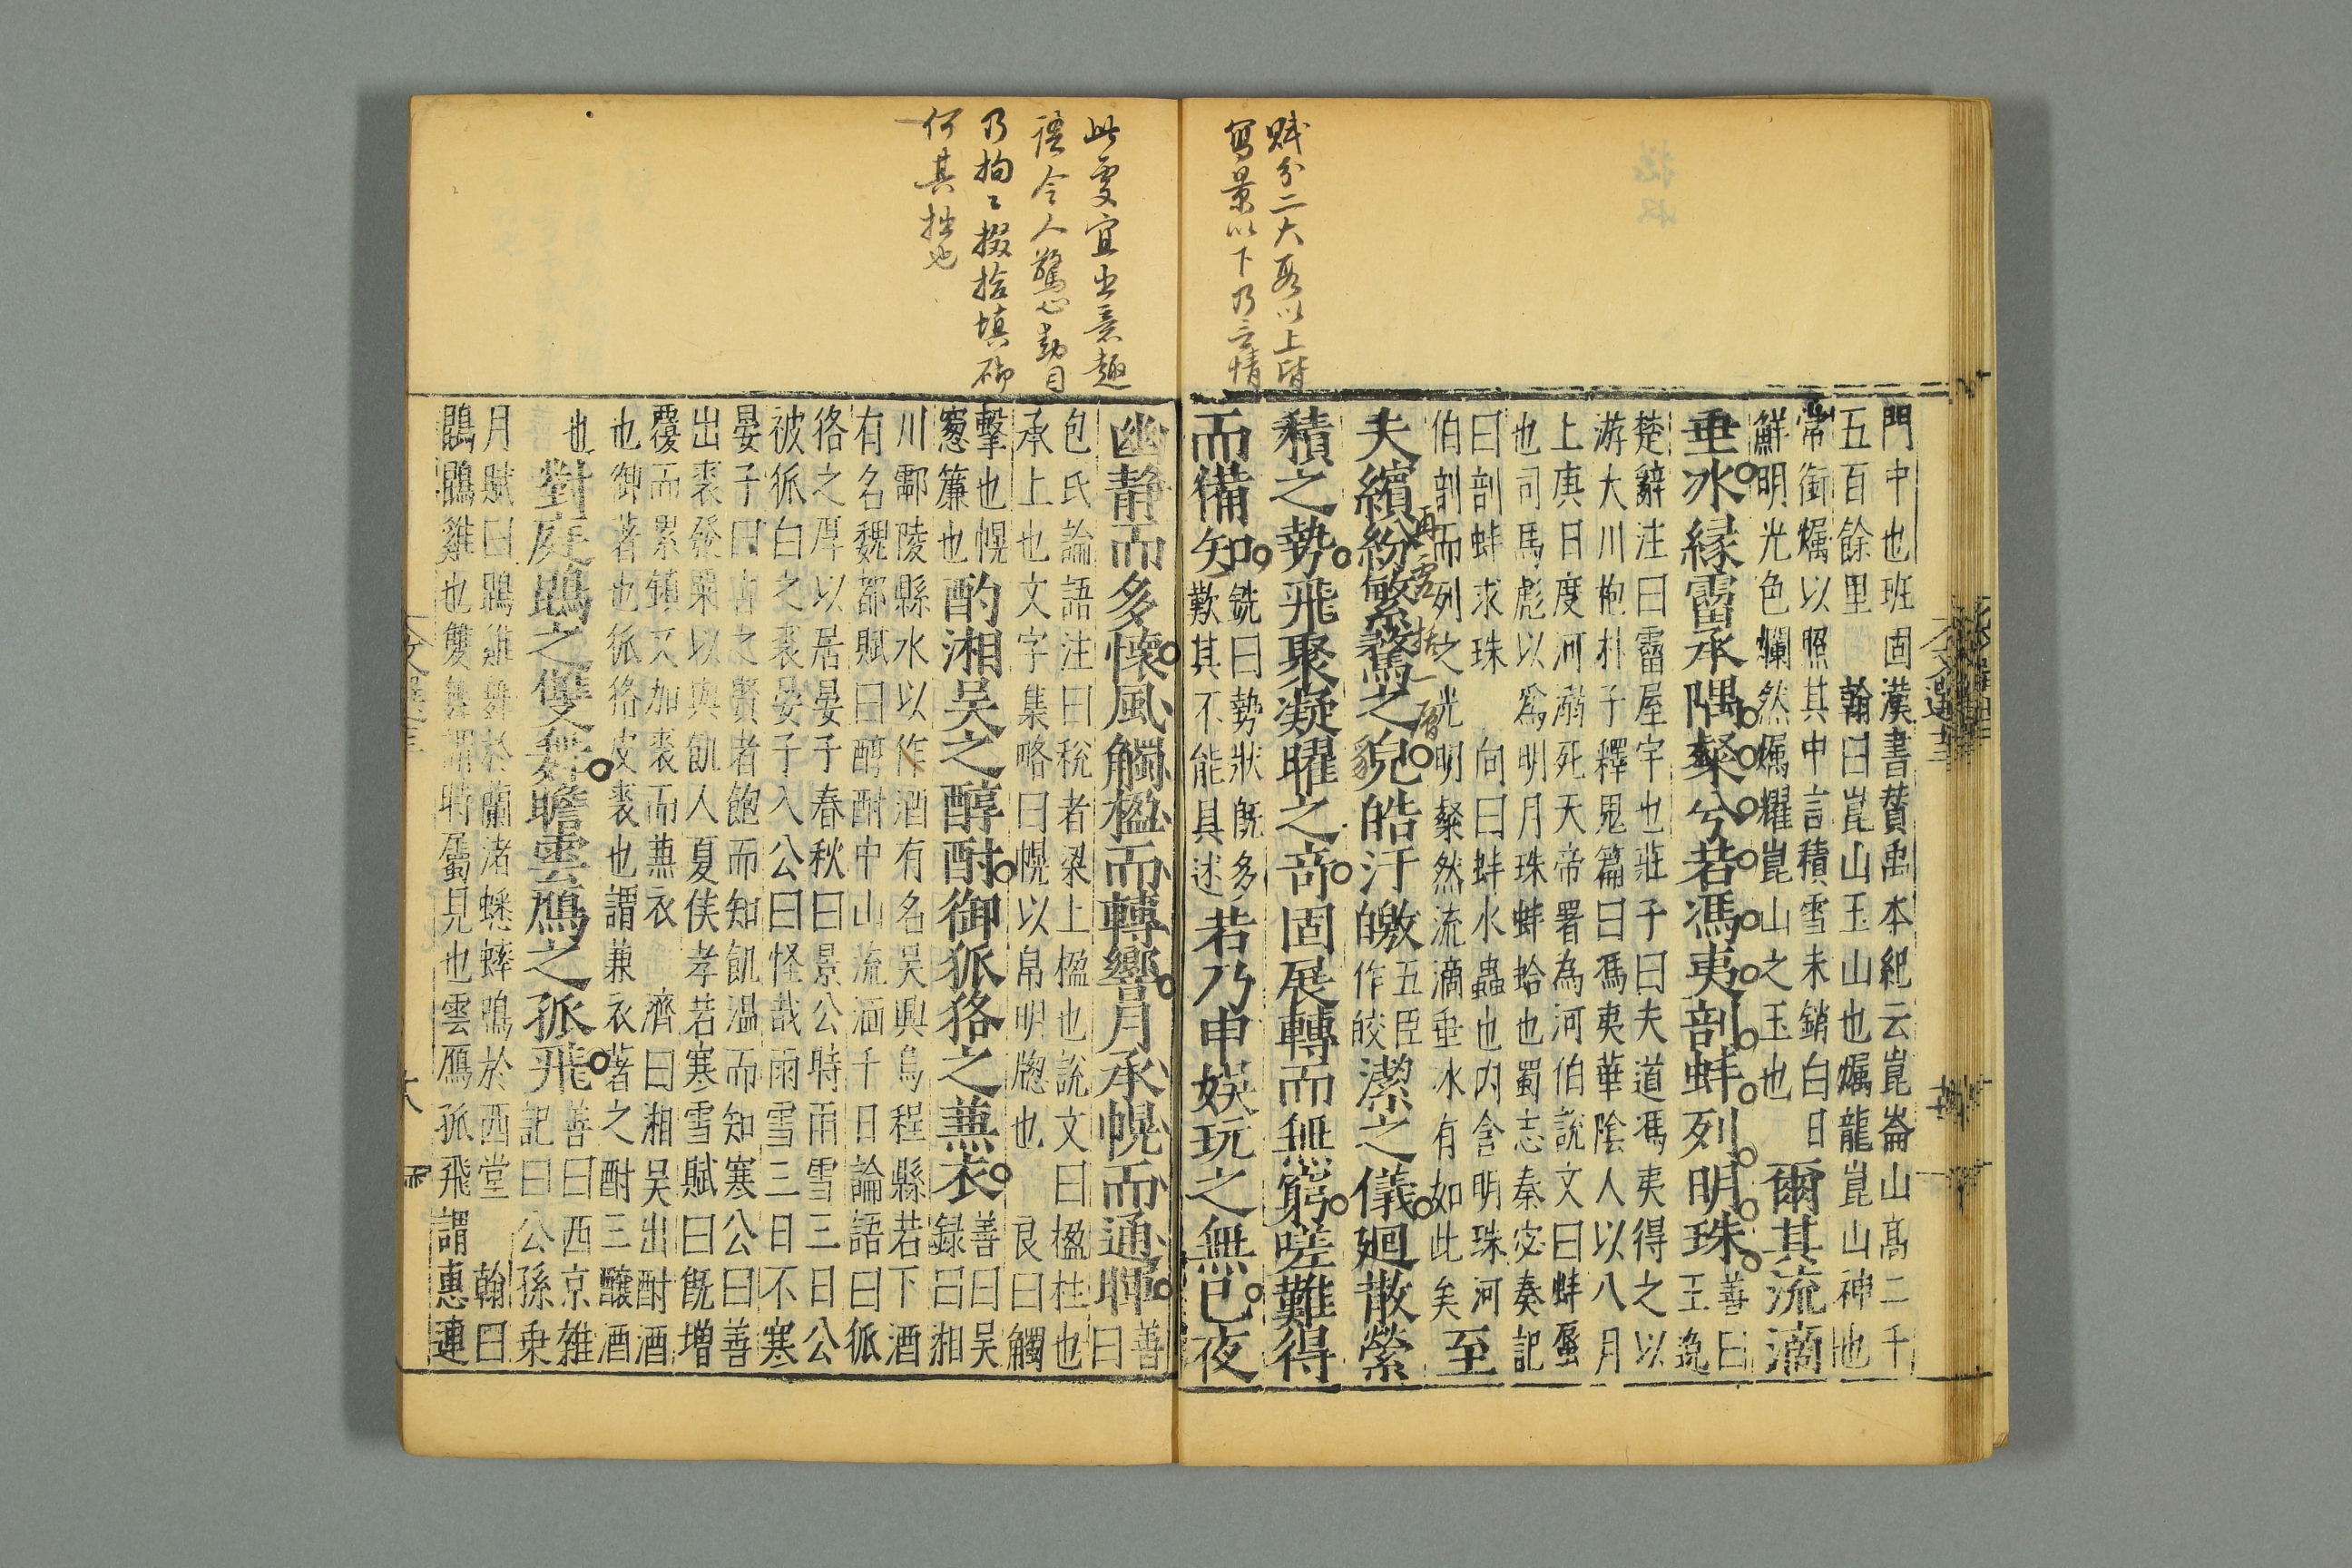 賦分二大段以上皆
寫景以下乃言情
門中也班固漢書贊禹本紀云崑崙山高二千
五百餘里 翰曰崑山玉山也燭龍崑山神也
常銜燭以照其中言積雪未銷白日
鮮明光色爛然燭耀崑山之玉也
爾其流滴
垂冰緣霤承隅粲兮若馮夷剖蚌列明珠
善曰
王逸
楚辭注曰霤屋宇也莊子曰夫道馮夷得之以
游大川枹朴子釋鬼篇曰馮夷華陰人以八月
上庚日度河溺死天帝署為河伯說文曰蚌蜃
也司馬彪以為明月珠蚌蛤也蜀志秦宓奏記
曰剖蚌求珠 向曰蚌水蟲也内含明珠河
伯剖而列之光明粲然流滴垂冰有如此矣
至
夫繽紛繁騖之貌皓汗皦
五臣
作皎
潔之儀廻散縈
積之勢飛聚凝曜之竒固展轉而無窮嗟難得
而備知
銑曰勢狀旣多
歎其不能具述
若乃申娛玩之無已夜
此處宜出意趣
語令人驚心動目
乃拘〻掇拾填砌
何其拙也
幽靜而多懷風觸楹而轉響月承幌而通暉
善
曰
包氏論語注曰稅者梁上楹也說文曰楹柱也
承上也文字集略曰幌以帛明牎也 良曰觸
擊也幌
窻簾也
酌湘吳之醇酎御狐狢之蒹衣
善曰吳
録曰湘
川酃陵縣水以作酒有名吳興烏程縣若下酒
有名魏都賦曰醇酎中山流湎千日論語曰狐
狢之厚以居晏子春秋曰景公時雨雪三日公
被狐白之裘晏子入公曰怪哉雨雪三日不寒
晏子曰古之賢者飽而知飢温而知寒公曰善
出裘發粟以與飢人夏侯孝若寒雪賦曰旣增
覆而累鎮又加裘而蒹衣 濟曰湘吳出酎酒
也御著也狐狢皮裘也謂兼衣著之酎三釀酒
也
對庭鵾之雙舞瞻雲鴈之孤飛
善曰西京雜
記曰公孫乗
月賦曰鵾雞舞於蘭渚蟋蟀鳴於西堂 翰曰
鵾鵾雞也雙舞謂時屬見也雲鴈孤飛謂惠連